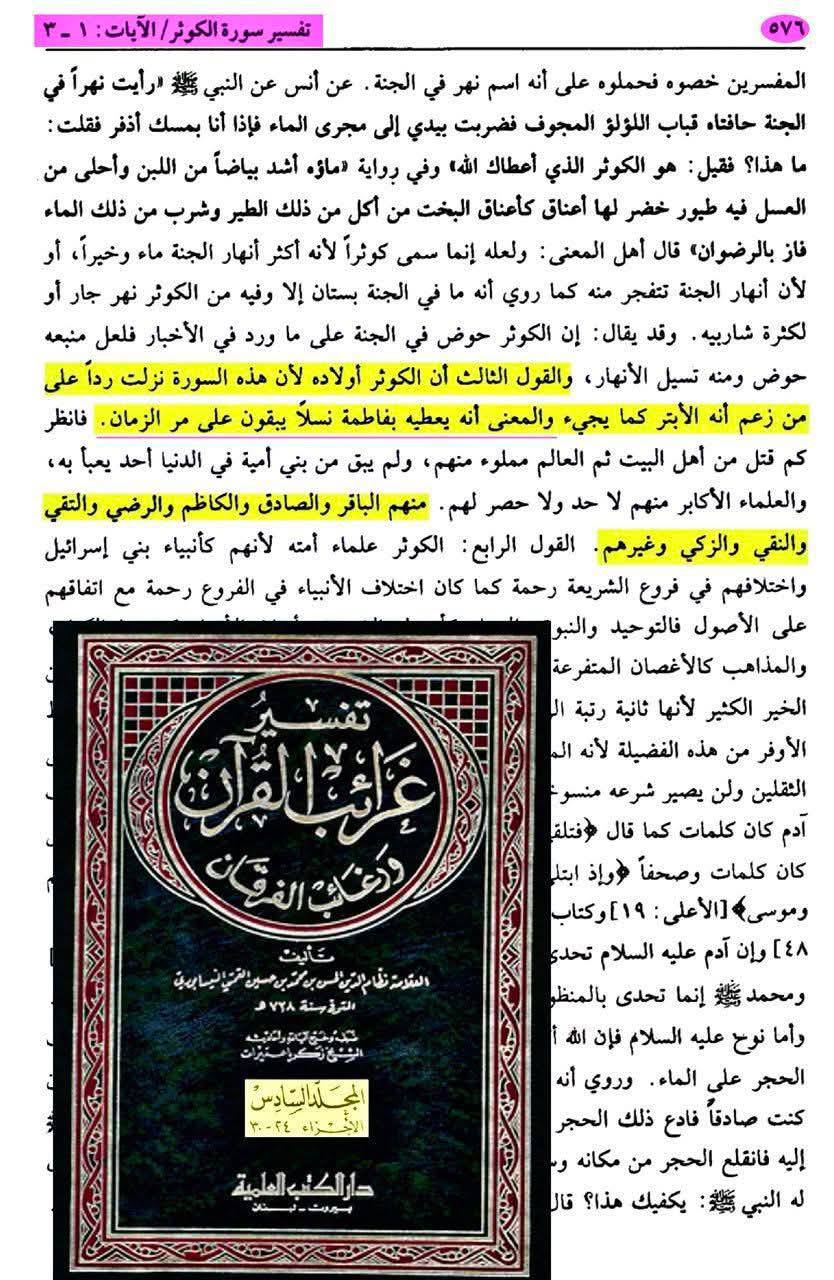 تفسير سورة الكوثر/ الآيات: ١ ـ ٣
٥٧٦
المفسرين خصوه فحملوه على أنه اسم نهر في الجنة. عن أنس عن النبي ﷺ «رأيت نهراً في
الجنة حافتاه قباب اللؤلؤ المجوف فضربت بيدي إلى مجرى الماء فإذا أنا بمسك أذفر فقلت:
ما هذا؟ فقيل: هو الكوثر الذي أعطاك الله» وفي رواية «ماؤه أشد بياضاً من اللبن وأحلى من
العسل فيه طيور خضر لها أعناق كأعناق البخت من أكل من ذلك الطير وشرب من ذلك الماء
فاز بالرضوان» قال أهل المعنى: ولعله إنما سمى كوثراً لأنه أكثر أنهار الجنة ماء وخيراً، أو
لأن أنهار الجنة تتفجر منه كما روي أنه ما في الجنة بستان إلا وفيه من الكوثر نهر جار أو
لكثرة شاربيه. وقد يقال: إن الكوثر حوض في الجنة على ما ورد في الأخبار فلعل منبعه
حوض ومنه تسيل الأنهار، والقول الثالث أن الكوثر أولاده لأن هذه السورة نزلت رداً على
من زعم أنه الأبتر كما يجيء والمعنى أنه يعطيه بفاطمة نسلاً يبقون على مر الزمان. فانظر
كم قتل من أهل البيت ثم العالم مملوء منهم، ولم يبق من بني أمية في الدنيا أحد يعبأ به،
والعلماء الأكابر منهم لا حد ولا حصر لهم. منهم الباقر والصادق والكاظم والرضي والتقي
والنقي والزكي وغيرهم. القول الرابع: الكوثر علماء أمته لأنهم كأنبياء بني إسرائيل
واختلافهم في فروع الشريعة رحمة كما كان اختلاف الأنبياء في الفروع رحمة مع اتفاقهم
على الأصول فالتوحيد
والمذاهب كالأغصان المتفرعة
الخير الكثير لأنها ثانية رتبة
الأوفر من هذه الفضيلة لأنه
الثقلين ولن يصير شرعه
آدم كان كلمات كما قال
كان كلمات وصحفاً ﴿وإذ
وموسى﴾ [الأعلى: ١٩] وكتاب
٤٨] وإن آدم عليه السلام
ومحمد ﷺ إنما تحدى
وأما نوح عليه السلام فإن الله
الحجر على الماء. وروي أنه
كنت صادقاً فادع ذلك الحجر
إليه فانقلع الحجر من مكانه
له النبي ﷺ: يكفيك هذا؟
تفسير
غرائب القرآن
ورغائب الفرقان
تأليف
العلامة نظام الدين الحسن بن محمد بن حسين القمي النيسابوري
المتوفى سنة ٧٢٨ هـ
ضبطه وخرج آياته وأحاديثه
الشيخ زكريا عميرات
المجلد السادس
الأجزاء ٢٤-٣٠
دار الكتب العلمية
بيروت - لبنان